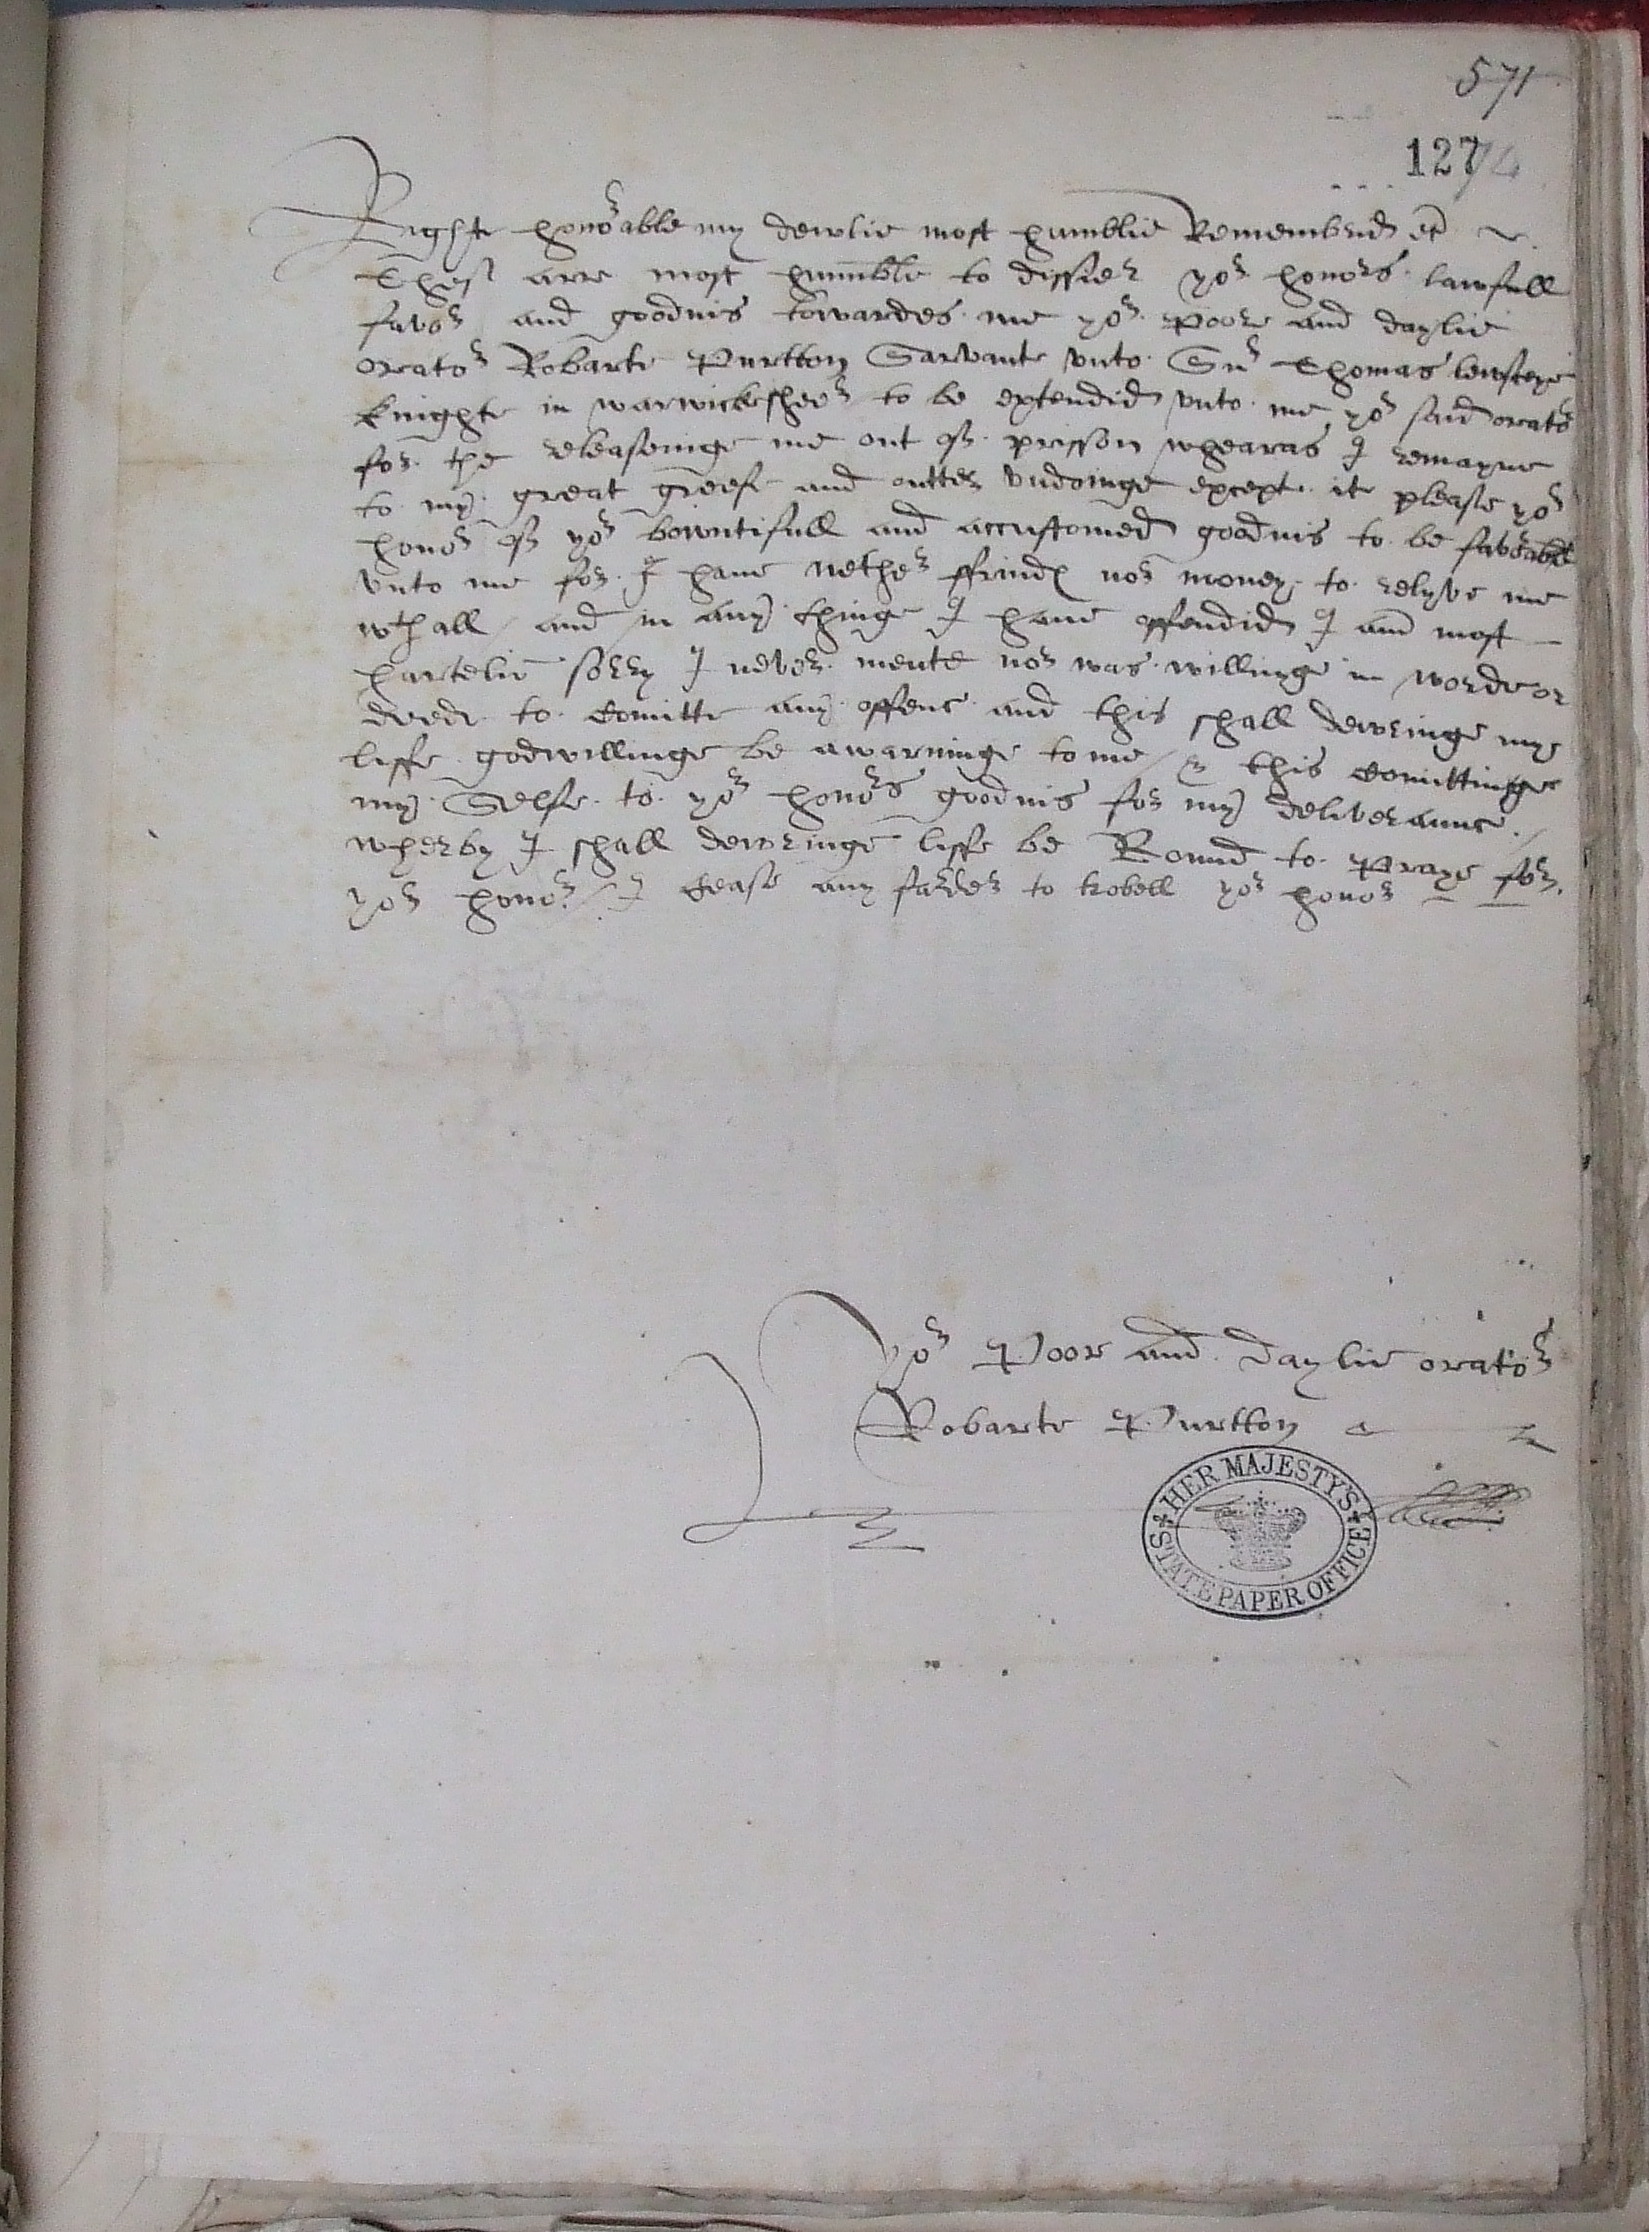 571
127
Righte honorable my dewtie most humblie Remembrid etc
Thes arre most humble to dissier yor honors lawfull
favor and goodnis towardes me yor poore and daylie
orator Robarte Purtton Sarvante vnto Sir Thomas lewseye
knighte in warwickesheer to be extendid vnto me yor said orator
for the releaseinge me out of prisson whearas I remayne
to my great greefe and outter vndoinge except it please yor
honor of yor bowntifull and accustomed goodnis to be favorable
vnto me for I have nether ffrind nor money to relyve me
wthall / and in any thinge I have offendid I am most
hartelie sorry I never mente nor was willinge in worde or
deede to comitte any offenc and this shall dewringe my
liffe godwillinge be awarninge to me / this comittinge
my Selfe to yor honors goodnis for my deliveraunc /
wherby I shall dewringe liffe be Bound to praye for
yor honor / I cease any farder to trobell yor honor
Yor Poor and daylie orator
Robarte Purtton
HER MAJESTY'S STATE PAPER OFFICE